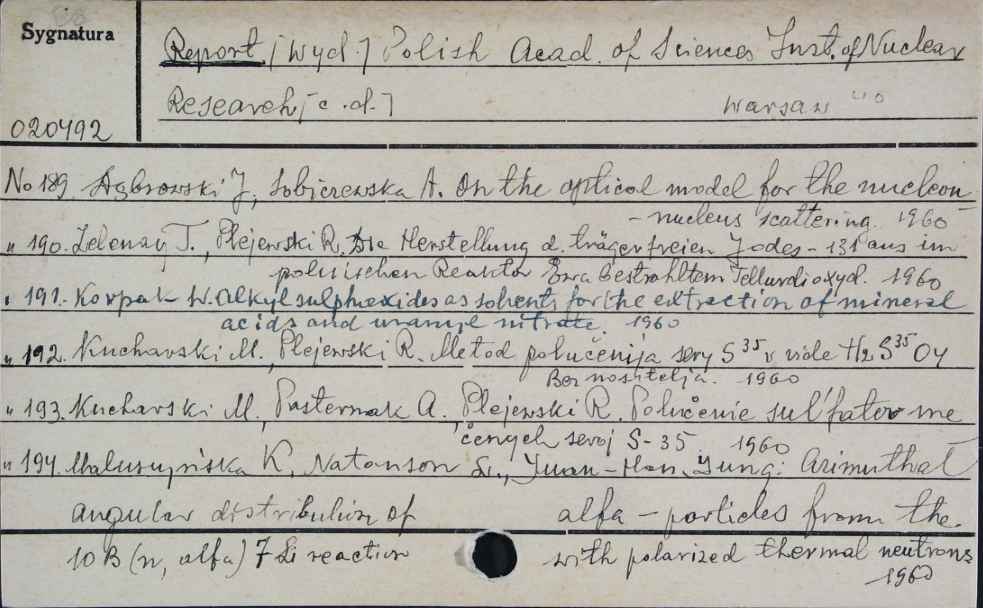 Sygnatura
Report [Wyd.] Polish Acad. of Sciences Inst. of Nuclear
Research [c.d.] Warsaw
020492
No 189. Dąbrowski J., Sobiczewska A. On the optical model for the nucleon
- nucleus scattering. 1960
" 190. Zelenay T., Plejewski R. Die Herstellung d. trägerfreien Jodes - 131 aus im
polnischen Reaktor Ewa bestrahltem Tellurdioxyd. 1960
" 191. Korpak W. Alkylsulphoxides as solvents for the extraction of mineral
acids and uranyle nitrate. 1960
" 192. Kucharski M., Plejewski R. Metod polučenija sery S35 v vide H2S35O4
Bez nositelja. 1960
" 193. Kucharski M., Pasternak A., Plejewski R. Polučenie sul'fatov me
čenych seroj S-35 1960
" 194. Małuszyńska K., Natanson L., Yuan-Han Yung: Azimuthal
angular distribution of alfa - particles from the
10 B (n, alfa) 7 Li reaction with polarized thermal neutrons
1960